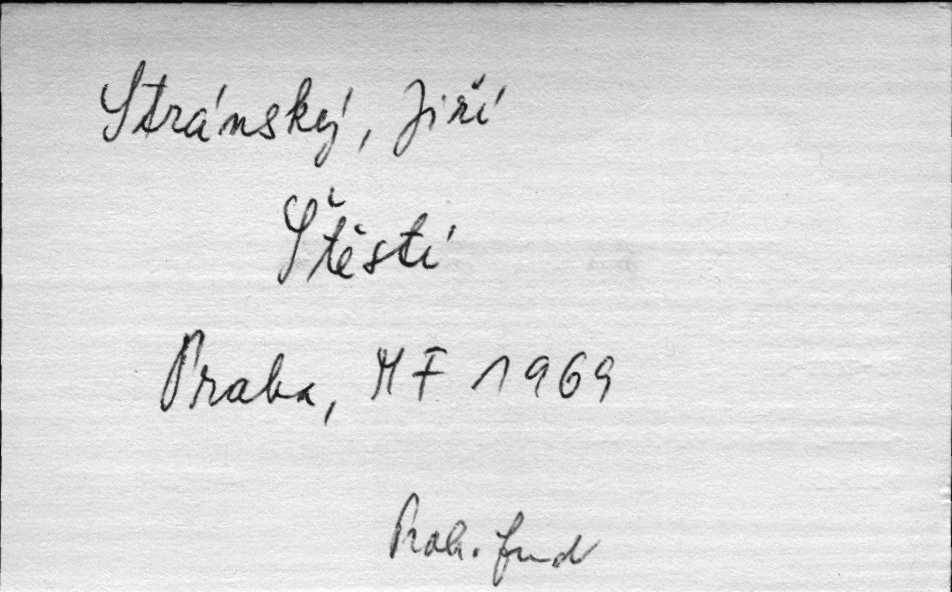 Stránský, Jiří
Štěstí
Praha, MF 1969
fond